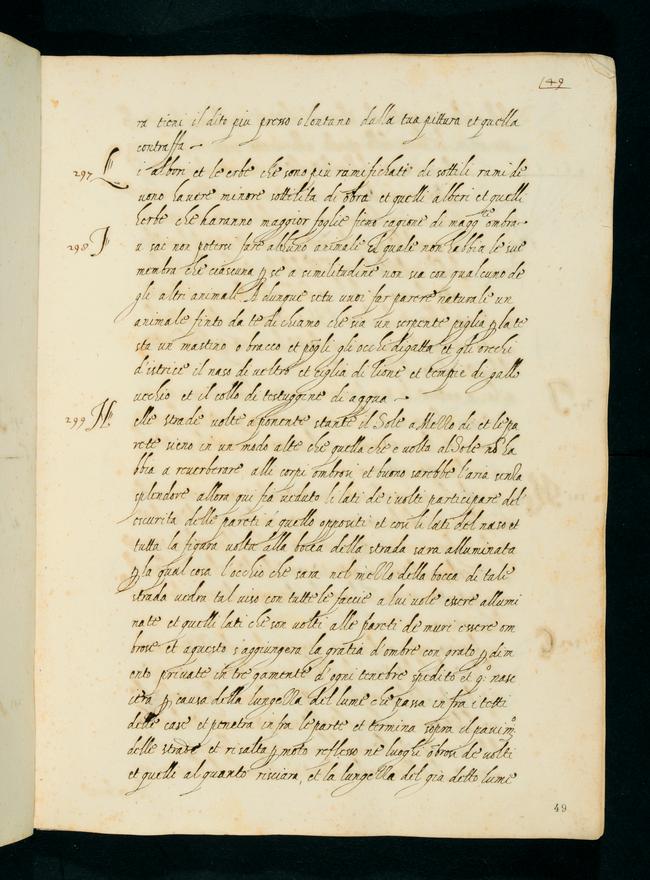 149
ra tieni il dito piu presso o lontano dalla tua pittura et quella
contraffa
297 L i albori et le erbe che sono piu ramifichate di sottili rami de
uono hauere minore sottilita di obra et quelli alberi et quelli
herbe che haranno maggior foglie fieno cagione di magg.re ombra
298 T u sai non potersi fare alchuno animale il quale non habbia le sue
membra che ciascuna p se a similitudine non sia con qualcuno de
gli altri animali. Adunque se tu uuoi far parere naturale un
animale finto da te dichiamo che sia un serpente piglia p la te
sta un mastino o bracco et põgli gli occhi di gatta et gli orecchi
d'istrice il naso di ueltro et ciglia di lione et tempie di gallo
uecchio et il collo di testuggine di aqqua
299 N elle strade volte a ponente stante il Sole a Mezzo di et le pa
rete sieno in un modo alte che quella che e volta al Sole nõ ha
bbia a reuerberare alli corpi ombrosi et buono sarebbe l'aria senza
splendore allora qui fia ueduto li lati de i uolti participare del
oscurita delle pareti á quello oppositi et cosi li lati del naso et
tutta la figura volta alla bocca della strada sara alluminata
p la qual cosa l'occhio che sara nel mezzo della bocca di tale
strada uedra tal uiso con tutte le faccie a lui uole essere allumi
nate et quelli lati che son volti alle pareti de muri essere om
brose et a questo s'aggiungera la gratia d'ombre con grato p dim
ento priuate in tregamente d'ogni tenebre spedito et q.o nasc
iera p causa della lungezza del lume che passa in fra i tetti
delle case et penetra infra le parte et termina sopra il pauim.o
delle strade et risalta p moto reflesso ne luoghi õbrosi de uolti
et quelli alquanto risciara, et la lungezza del già detto lume
49